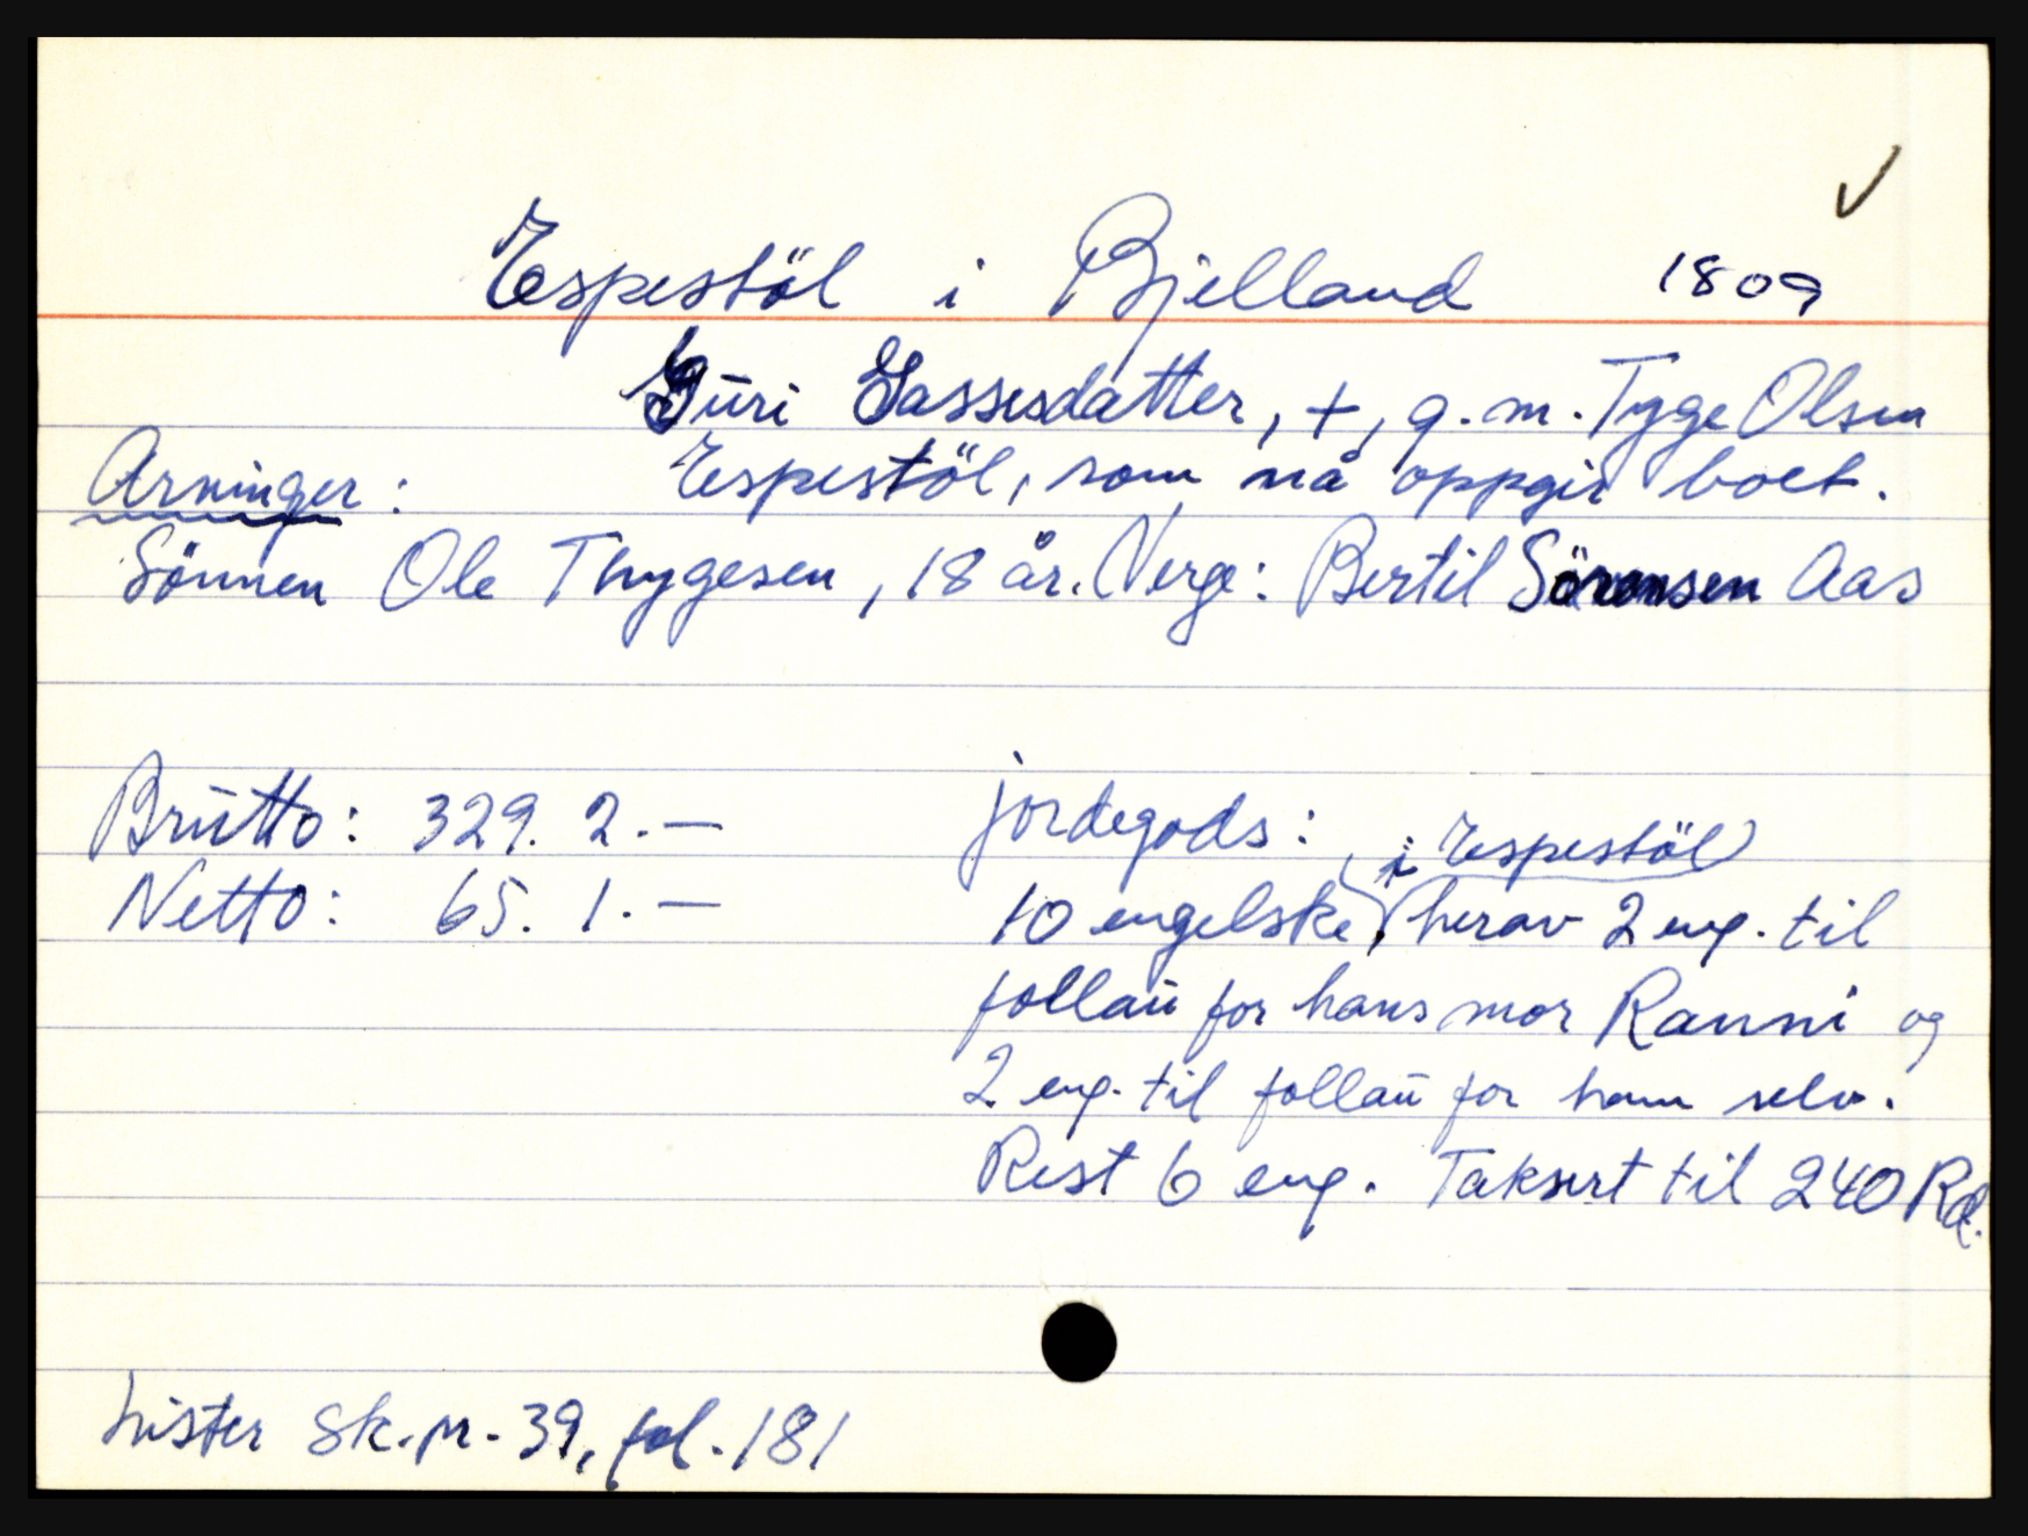 ✓
Espestöl i Bjelland 1809
Guri Gassesdatter, +, g. m. Tyge Olsen
Espestöl, som nå oppgir boet.
Arvinger:
Sönnen Ole Thygesen, 18 år. Verge: Bertil Sörensen Aas
Brutto: 329. 2. —
Netto: 65. 1. —
jordegods:
i Espestöl
10 engelske, herav 2 eng. til
follau for hans mor Ranni og
2 eng. til follau for ham selv.
Rest 6 eng. Taksert til 240 Rd.
Lister sk. pr. 39, fol. 181